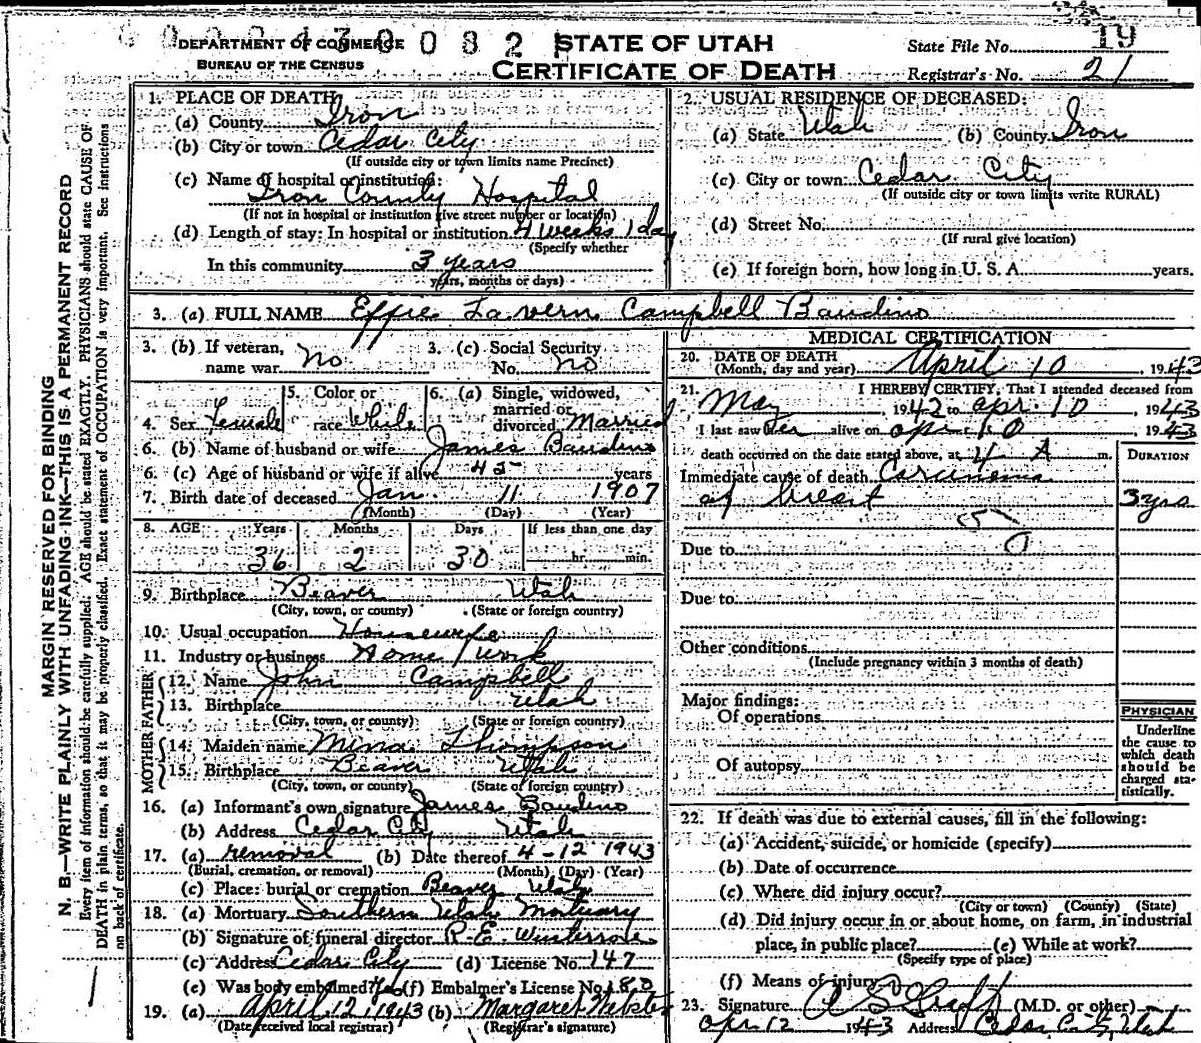 DEPARTMENT OF COMMERCE
BUREAU OF THE CENSUS
STATE OF UTAH
CERTIFICATE OF DEATH
State File No. 19
Registrar's No. 21
MARGIN RESERVED FOR BINDING
N. B.—WRITE PLAINLY WITH UNFADING INK—THIS IS A PERMANENT RECORD
Every item of information should be carefully supplied. AGE should be stated EXACTLY. PHYSICIANS should state CAUSE OF
DEATH in plain terms, so that it may be properly classified. Exact statement of OCCUPATION is very important. See instructions
on back of certificate.
1. PLACE OF DEATH
(a) County Iron
(b) City or town Cedar City
(If outside city or town limits name Precinct)
(c) Name of hospital or institution:
Iron County Hospital
(If not in hospital or institution give street number or location)
(d) Length of stay: In hospital or institution 4 weeks 1 day
(Specify whether
In this community 3 years
years, months or days)
2. USUAL RESIDENCE OF DECEASED:
(a) State Utah (b) County Iron
(c) City or town: Cedar City
(If outside city or town limits write RURAL)
(d) Street No.
(If rural give location)
(e) If foreign born, how long in U. S. A. years.
3. (a) FULL NAME Effie Lavern Campbell Baudino
3. (b) If veteran, name war No
3. (c) Social Security No. No
4. Sex Female
5. Color or race White
6. (a) Single, widowed, married or divorced Married
6. (b) Name of husband or wife James Baudino
6. (c) Age of husband or wife if alive 42 years
7. Birth date of deceased Jan. 11 1907
(Month) (Day) (Year)
8. AGE Years Months Days If less than one day
36 2 30 hr. min.
9. Birthplace Beaver Utah
(City, town, or county) (State or foreign country)
10. Usual occupation Housewife
11. Industry or business Home work
FATHER
12. Name John Campbell
13. Birthplace Utah
(City, town, or county) (State or foreign country)
MOTHER
14. Maiden name Mina Thompson
15. Birthplace Beaver Utah
(City, town, or county) (State of foreign country)
16. (a) Informant's own signature James Baudino
(b) Address Cedar City Utah
17. (a) removal (b) Date thereof 4-12 1943
(Burial, cremation, or removal) (Month) (Day) (Year)
(c) Place: burial or cremation Beaver Utah
18. (a) Mortuary Southern Utah Mortuary
(b) Signature of funeral director R.E. Winterrose
(c) Address Cedar City (d) License No. 147
(e) Was body embalmed? Yes (f) Embalmer's License No. 180
19. (a) April 12, 1943 (b) Margaret Webster
(Date received local registrar) (Registrar's signature)
MEDICAL CERTIFICATION
20. DATE OF DEATH
(Month, day and year) April 10, 1943
21. I HEREBY CERTIFY, That I attended deceased from
May, 1942 to apr. 10, 1943
I last saw her alive on apr 10 1943
death occurred on the date stated above, at 4 A m. DURATION
Immediate cause of death Carcinoma
of breast 3 yrs
50
Due to
Due to
Other conditions
(Include pregnancy within 3 months of death)
Major findings:
Of operations
Of autopsy
PHYSICIAN
Underline
the cause to
which death
should be
charged sta-
tistically.
22. If death was due to external causes, fill in the following:
(a) Accident, suicide, or homicide (specify)
(b) Date of occurrence
(c) Where did injury occur?
(City or town) (County) (State)
(d) Did injury occur in or about home, on farm, in industrial
place, in public place? (e) While at work?
(Specify type of place)
(f) Means of injury
23. Signature (M.D. or other)
apr 12 1943 Address Cedar City, Utah